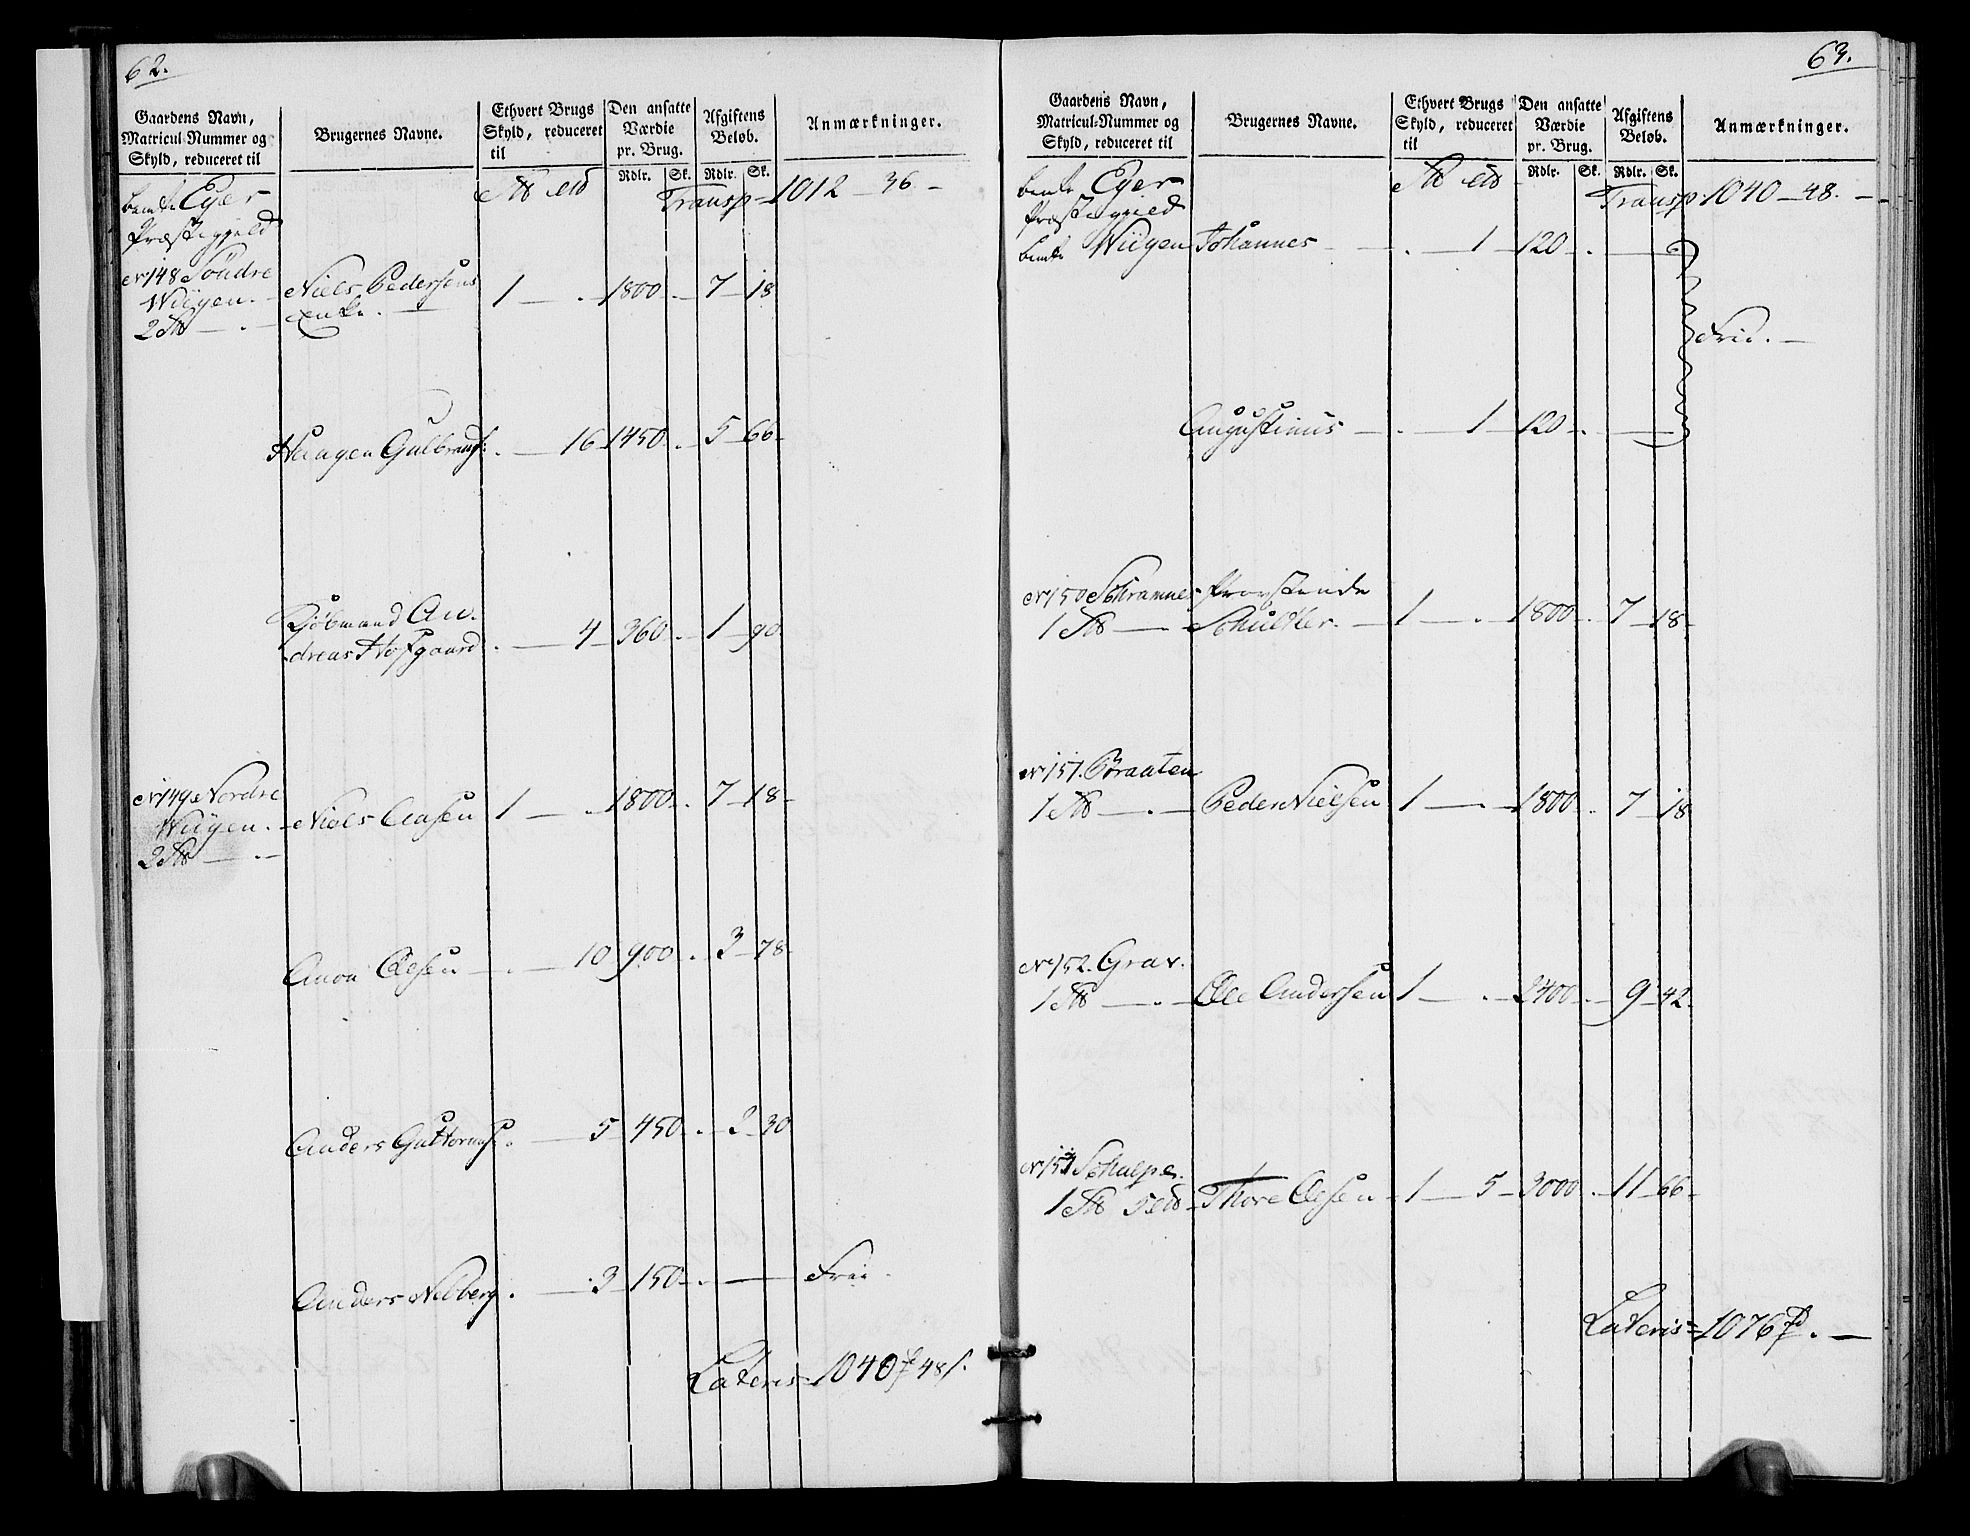 62.
Gaardens Navn,
Matricul-Nummer og
Skyld, reduceret til
Brugernes Navne.
Ethvert Brugs
Skyld, reduceret
til
Den ansatte
Værdie
pr. Brug.
Rdlr. Sk.
Afgiftens
Beløb.
Rdlr. Sk.
Anmærkninger.
bemte Eger
Præstegield
Transp 1012 - 36 -
No 148 Söndre
Wiigen. - Niels Pedersens 1 - . - 1800 - . - 7 - 18
Enke. -
Haagen Gulbrands: . - 16 - 1450 - . - 5 - 66 -
Kjöbmand An-
dreas Hofgaard . - 4 - 360 - . - 1 - 90
No 149 Nordre
Wiigen. - Niels Aasen 1 - . - 1800 - . - 7 - 18 -
Amon Olesen - . - 10 - 900 - . - 3 - 78 -
Anders Guttorms: . - 5 - 450 - . - 2 - 30
Anders Nedberg . - 3 - 150 - . - Frie.
Lateris 1040 48
63.
Gaardens Navn,
Matricul-Nummer og
Skyld, reduceret til
Brugernes Navne.
Ethvert Brugs
Skyld, reduceret
til
Den ansatte
Værdie
pr. Brug.
Rdlr. Sk.
Afgiftens
Beløb.
Rdlr. Sk.
Anmærkninger.
bemte Eger
Præstegield
Transp 1040 - 48. -
bemte Wiigen Johannes - . - 1 - 120 - . -
Frie. -
Augustinus - . - 1 - 120 - . -
No 150 Schramnes Provstinde
Schultler - 1 - . - 1800 - . 7 - 18 -
No 151. Braaten
Peder Nielsen 1 - . - 1800 - . 7 - 18
No 152. Grav.
Ole Andersen 1 - . - 2400 - . - 9 - 42 -
Schulpe.
Thore Olesen - 1 - 5 - 3000 - . - 11 - 66 -
Lateris 1076 . -